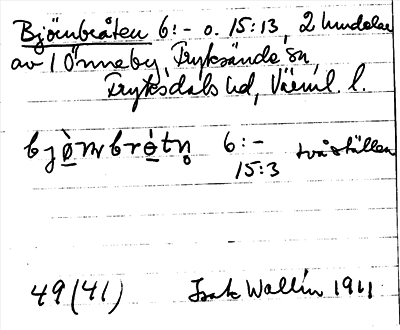 Björnbråten 6:- o. 15:13, 2 hundelar
av 1 Önneby, Fryksände sn,
Fryksdals hd, Värml. l.
bjò̱ɳbrò̱tn̥ 6:- två ställen
15:3
49 (41) Isak Wallin 1911